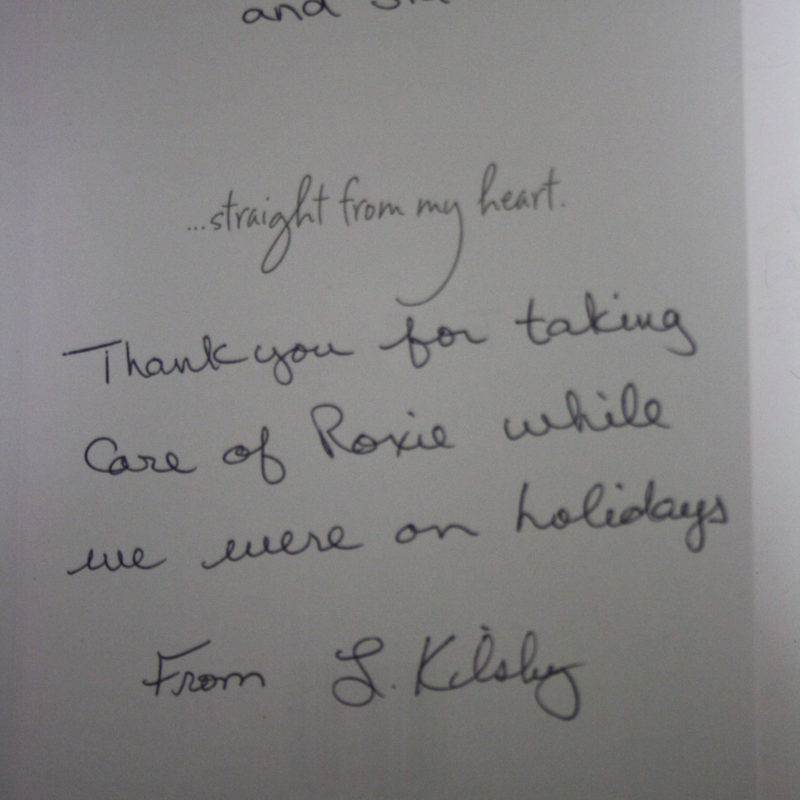 and
...straight from my heart.
Thank you for taking
Care of Roxie while
we were on holidays
From L. Kilsby